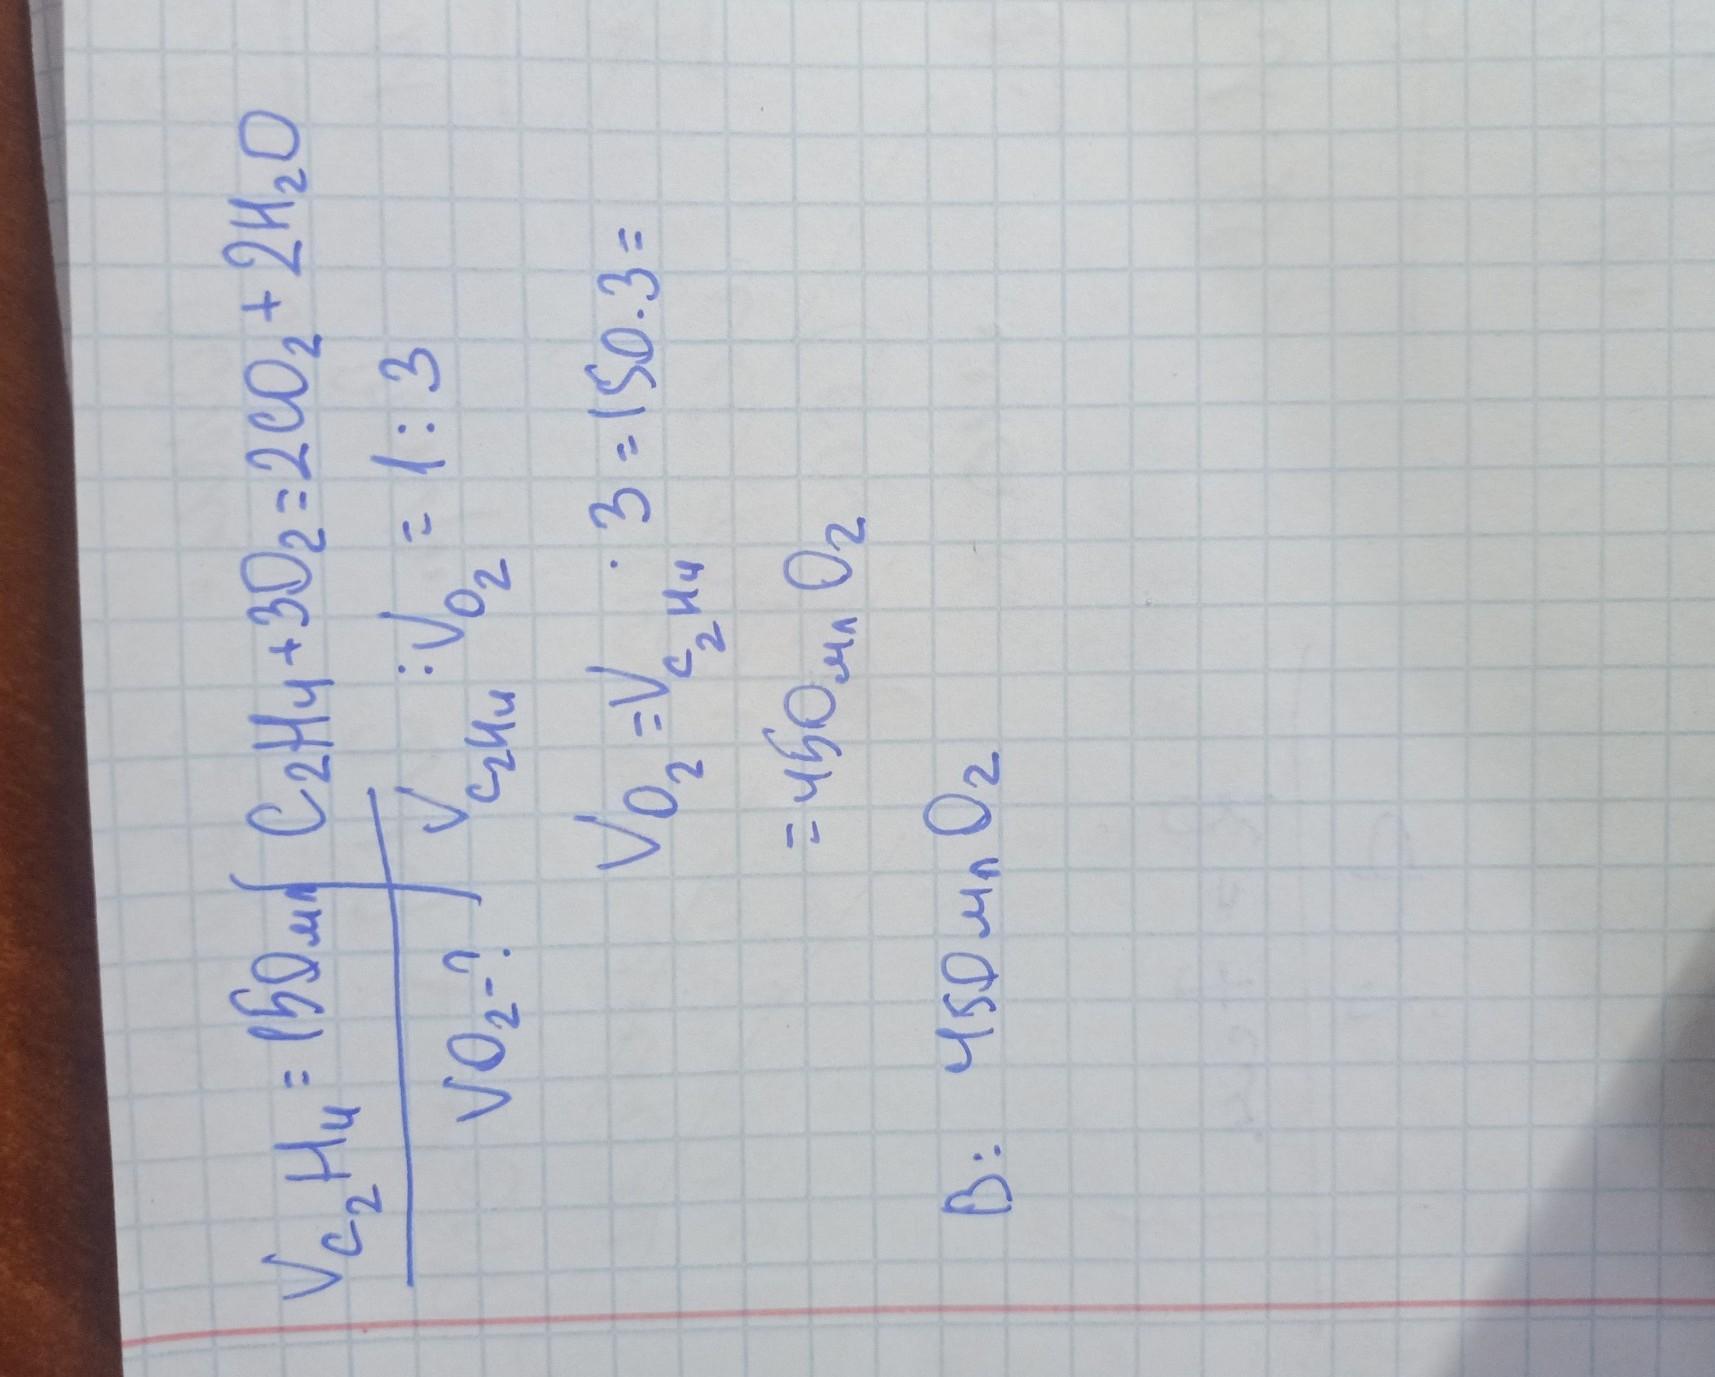 V C₂H₄ = 150мл
VO₂-?
C₂H₄+3O₂=2CO₂+2H₂O
V C₂H₄ : V O₂ = 1:3
V O₂ = V C₂H₄ · 3 = 150·3=
= 450мл O₂
В: 450мл O₂